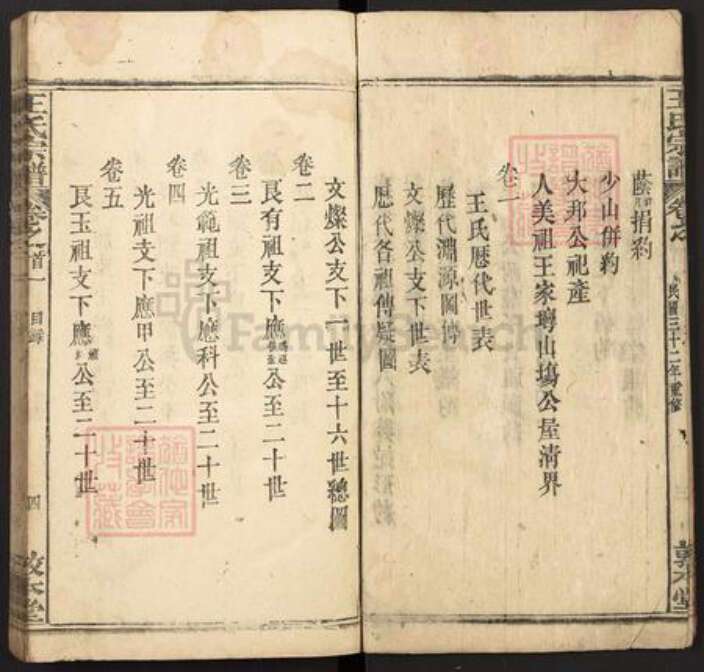 王氏宗譜
卷之首
民國三十二年重修
敦本堂
蔭捐約
少山併約
大邦公祀產
人美祖王家塆山塲公屋清界
卷一
王氏歷代世表
歷代淵源圖傳
文燦公支下世表
歷代各祖傳疑圖
文燦公支下一世至十六世總圖
卷二
艮有祖支下應公至二十世
卷三
光範祖支下應科公至二十世
卷四
光祖支下應甲公至二十世
卷五
艮玉祖支下應公至二十世
王氏宗譜
卷之首一
目錄
四
敦本堂
FamilySearch